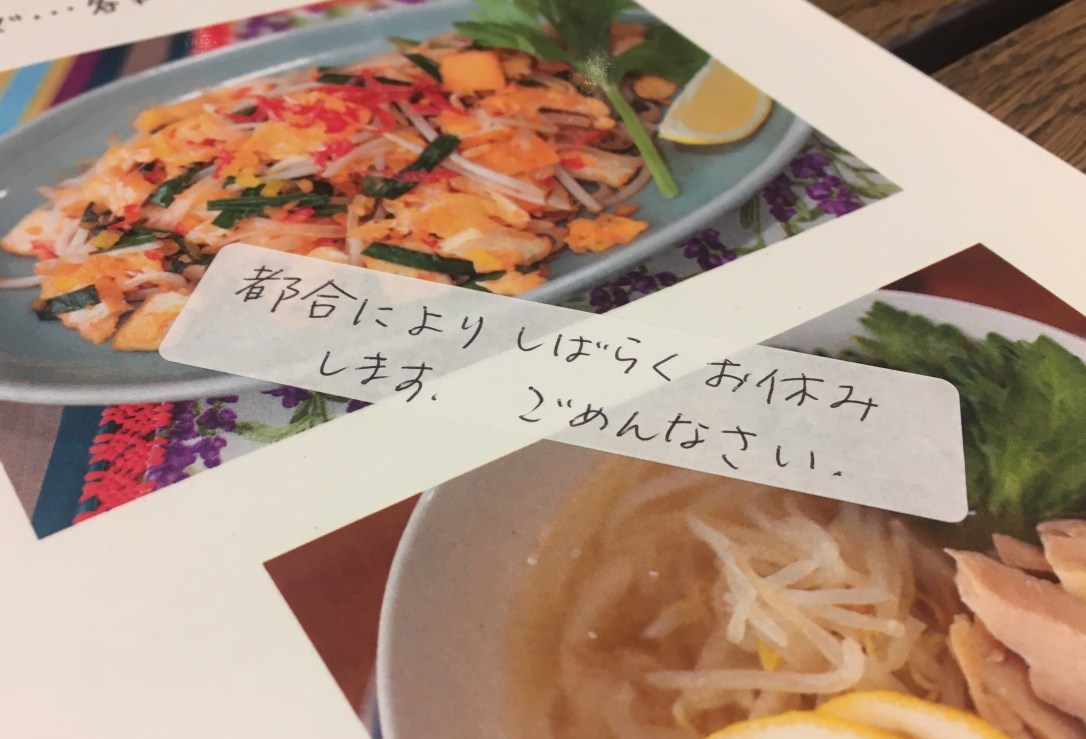 都合によりしばらくお休み
します. ごめんなさい.